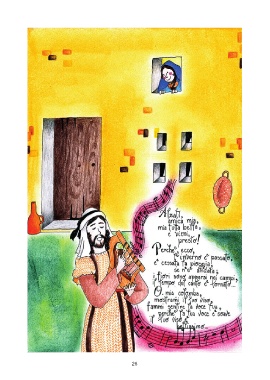 Alzati,
amica mia,
mia tutta bella,
e vieni,
presto!
Perché, ecco,
l'inverno è passato,
è cessata la pioggia,
se n'è andata;
i fiori sono apparsi nei campi,
il tempo del canto è tornato...
O mia colomba,
mostrami il tuo viso,
fammi sentire la tua voce,
perché la tua voce è soave
il tuo viso è
bellissimo.
29